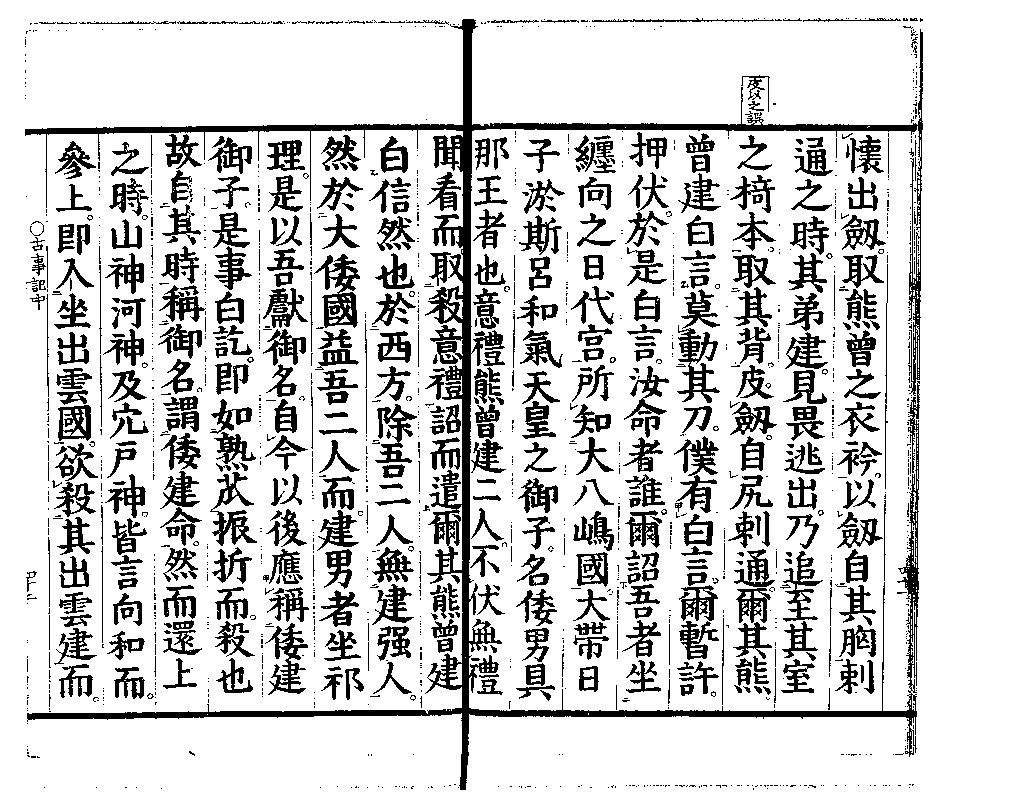 皮以之誤
懷出劔。取熊曾之衣衿。以劔自其胸刺
通之時。其弟建。見畏逃出。乃追至其室
之椅本。取其背。皮劔。自尻刺通。爾其熊
曾建白言。莫動其刀。僕有白言。爾暫許。
押伏。於是白言。汝命者誰。爾詔吾者坐
纏向之日代宮。所知大八嶋國。大帶日
子淤斯呂和氣天皇之御子。名倭男具
那王者也。意禮熊曾建二人。不伏無禮
聞看而取殺意禮詔而遣。爾其熊曾建
白信然也。於西方。除吾二人。無建强人。
然於大倭國益吾二人而。建男者坐祁
理。是以吾獻御名。自今以後應稱倭建
御子。是事白訖。即如熟苽振折而。殺也
故自其時稱御名。謂倭建命。然而還上
之時。山神河神。及穴戸神。皆言向和而。
參上。即入坐出雲國。欲殺其出雲建而。
○古事記中
四十二